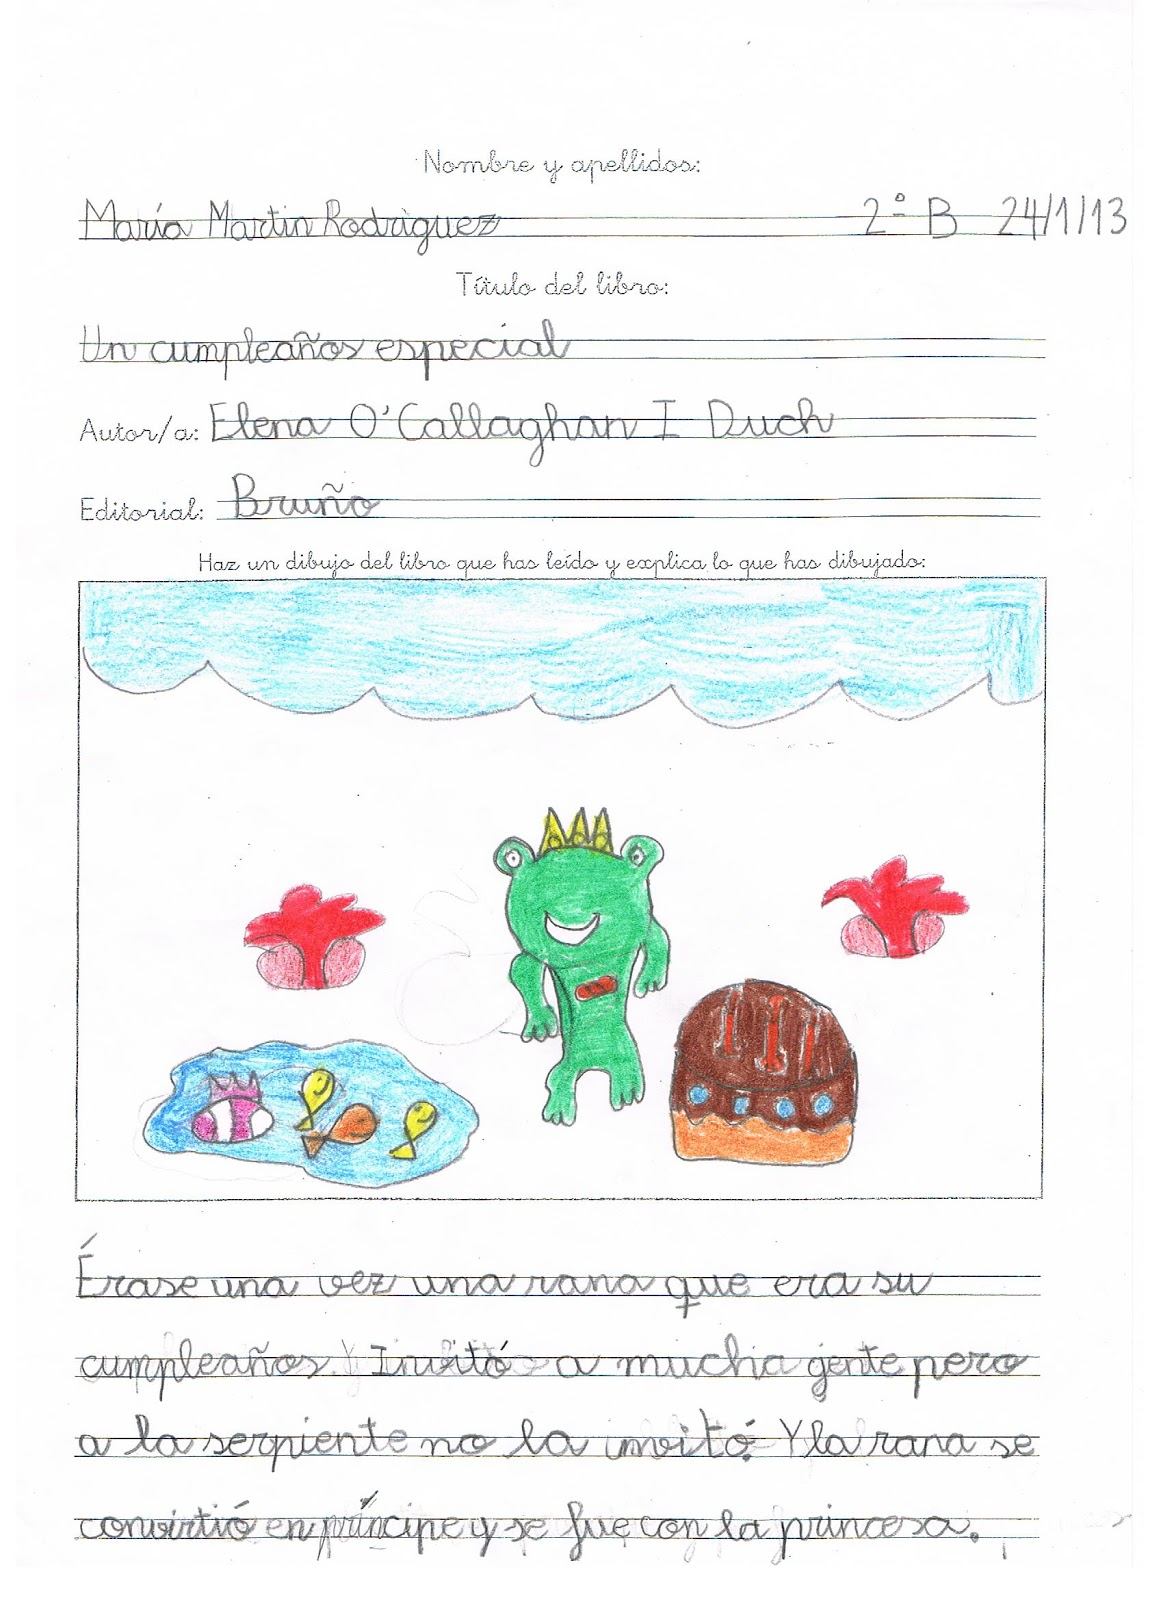 Nombre y apellidos:
María Martin Rodriguez 2º B 24/1/13
Título del libro:
Un cumpleaños especial
Autor/a: Elena O'Callaghan I Duch
Editorial: Bruño
Haz un dibujo del libro que has leído y explica lo que has dibujado:
Érase una vez una rana que era su
cumpleaños. Invitó a mucha gente pero
a la serpiente no la invitó. Y la rana se
convirtió en príncipe y se fue con la princesa.